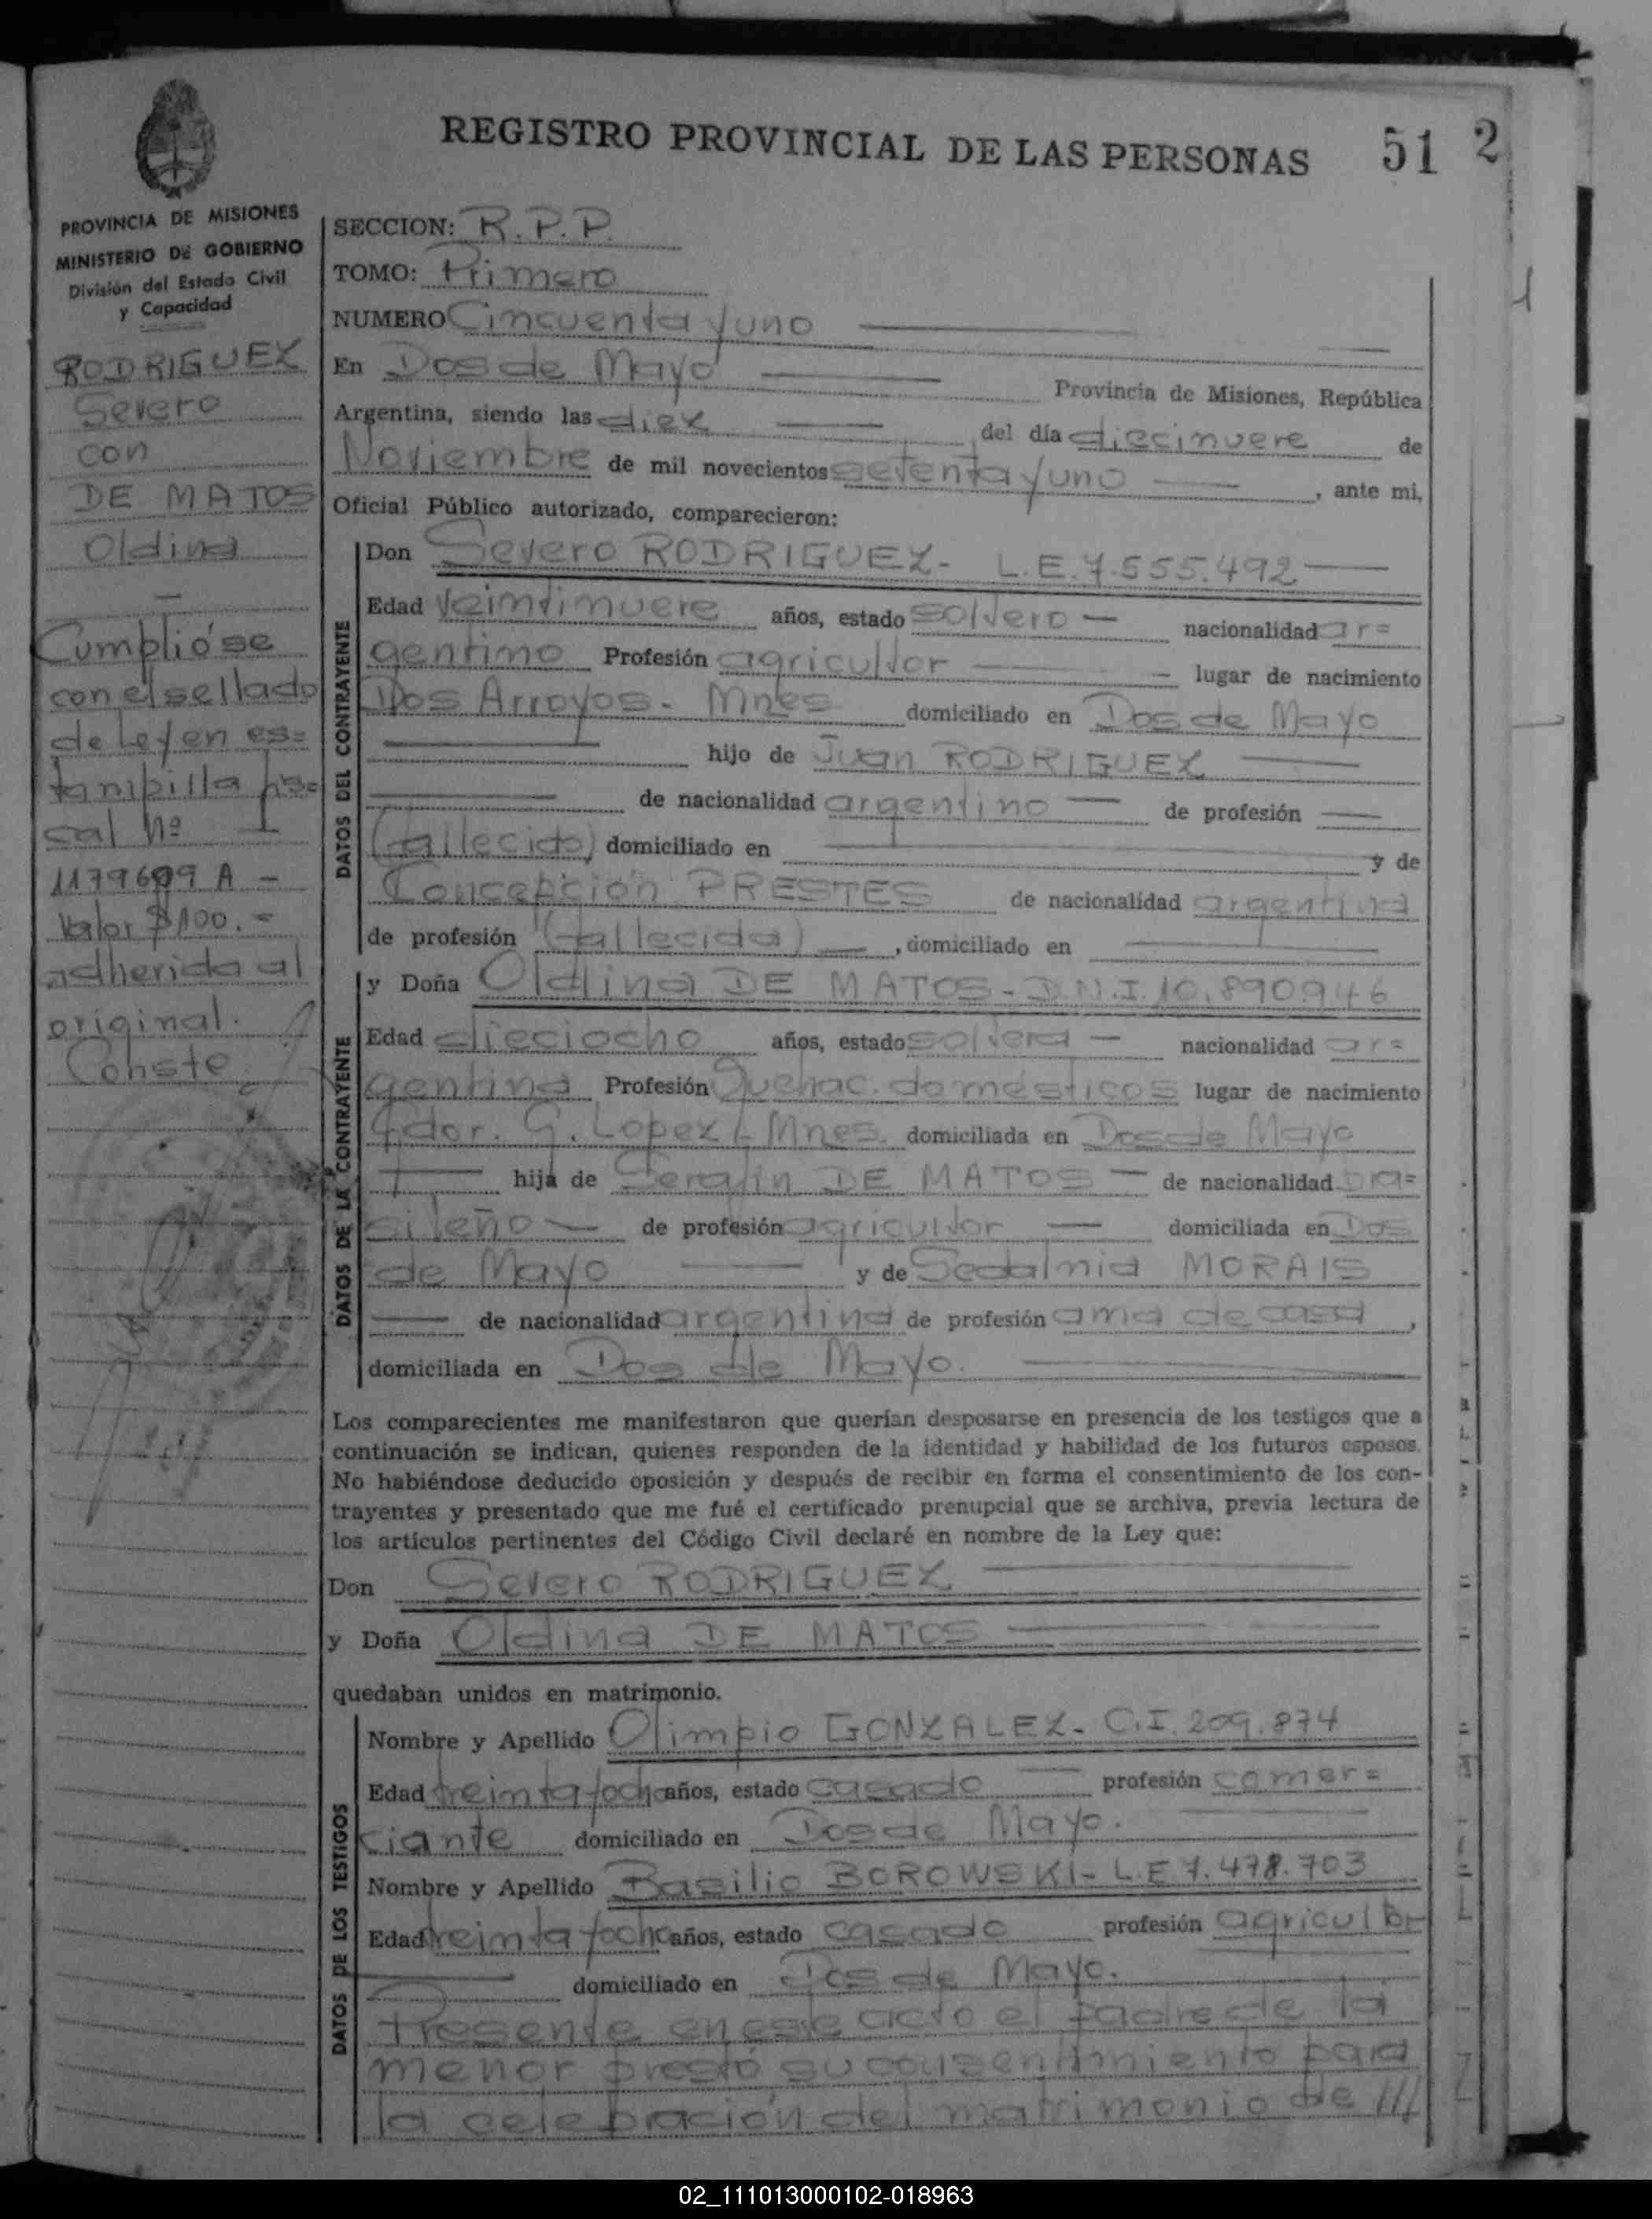 REGISTRO PROVINCIAL DE LAS PERSONAS 51 2
PROVINCIA DE MISIONES
MINISTERIO DE GOBIERNO
División del Estado Civil
y Capacidad
RODRIGUEZ
Severo
con
DE MATOS
Oldina
Cumplióse
con el sellado
de Ley en es=
tampilla fis=
cal Nº
1179699 A -
Valor $100.-
adherida al
original.
Conste
SECCION: R.P.P.
TOMO: Primero
NUMERO Cincuenta y uno
En Dos de Mayo Provincia de Misiones, República
Argentina, siendo las diez del día diecinueve de
Noviembre de mil novecientos setenta y uno, ante mi,
Oficial Público autorizado, comparecieron:
DATOS DEL CONTRAYENTE
Don Severo RODRIGUEZ- L.E. 7.555.492
Edad veintinueve años, estado soltero nacionalidad ar=
gentino Profesión agricultor lugar de nacimiento
Dos Arroyos. Mnes domiciliado en Dos de Mayo
hijo de Juan RODRIGUEZ
de nacionalidad argentino de profesión
(fallecido) domiciliado en y de
Concepción PRESTES de nacionalidad argentina
de profesión (fallecida), domiciliado en
DATOS DE LA CONTRAYENTE
y Doña Oldina DE MATOS- D.N.I. 10.890.946
Edad dieciocho años, estado soltera nacionalidad ar=
gentina Profesión Quehac. domésticos lugar de nacimiento
Gdor. G. Lopez/ Mnes. domiciliada en Dos de Mayo
hija de Serafin DE MATOS de nacionalidad bra=
sileño de profesión agricultor domiciliada en Dos
de Mayo y de Sedalmia MORAIS
de nacionalidad argentina de profesión ama de casa,
domiciliada en Dos de Mayo.
Los comparecientes me manifestaron que querían desposarse en presencia de los testigos que a
continuación se indican, quienes responden de la identidad y habilidad de los futuros esposos.
No habiéndose deducido oposición y después de recibir en forma el consentimiento de los con-
trayentes y presentado que me fué el certificado prenupcial que se archiva, previa lectura de
los artículos pertinentes del Código Civil declaré en nombre de la Ley que:
Don Severo RODRIGUEZ
y Doña Oldina DE MATOS
quedaban unidos en matrimonio.
DATOS DE LOS TESTIGOS
Nombre y Apellido Olimpio GONZALEZ- C.I. 209.874
Edad treinta y ocho años, estado casado profesión comer=
ciante domiciliado en Dos de Mayo.
Nombre y Apellido Basilio BOROWSKI- L.E 7.478.703
Edad treinta y ocho años, estado casado profesión agricultor
domiciliado en Dos de Mayo.
Presente en este acto el padre de la
menor prestó su consentimiento para
la celebración del matrimonio de ///
02_111013000102-018963